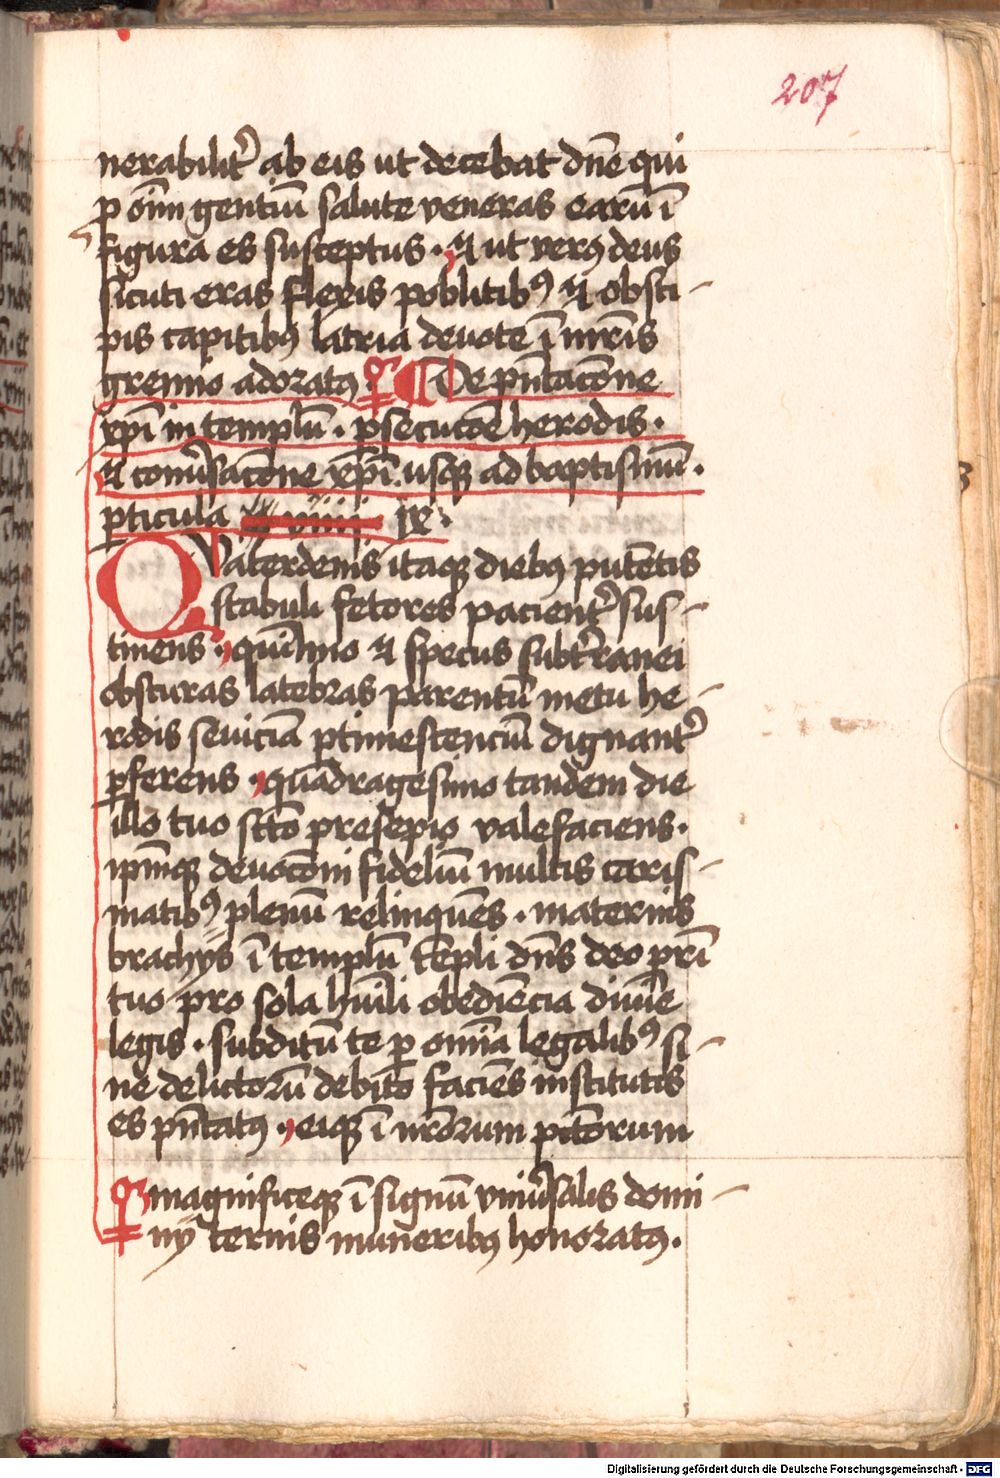 207
nerabilit᷒ ab eis ut decebat dn̄e qui
ꝑ oīm gentiū salute veneras earū ī
figura es susceptus · ⁊ ut verꝰ deus
sicuti eras flexis poblitibꝰ ⁊ obsti-
pis capitibꝰ latria deuote ī mr̄is
gremio adoratꝰ · De pn̄tacōne
xpī in templū · ꝑsecucōe herodis ·
⁊ conuersacōne xpī usqꝫ ad baptismū ·
ꝑticula ix ·
Quaterdenis itaqꝫ diebꝰ putētis
stabuli fetores pacient᷒ sus-
tinens · quīimo ⁊ specus subt᷒ranei
obscuras latebras parentū metu he-
rodis seuiciā ꝑtimescenciū dignant᷒
ꝑferens · quadragesimo tandem die
illo tuo sc̄to presepio valefaciens ·
ip̄mqꝫ deuocōni fideliū multis caris-
matibꝰ plenū relinquēs · maternis
brachijs ī templū tēpli dn̄s deo pr̄i
tuo pro sola hūili obediēcia diuīe
legis · subditū te ꝑ omīa legalibꝰ si-
ne delictorū debito faciēs institutis
es pn̄tatꝰ · eiqꝫ ī nr̄orum pctōrum
magnificeqꝫ ī signū vniūsalis domi-
nij ternis muneribꝰ honoratꝰ ·
Digitalisierung gefördert durch die Deutsche Forschungsgemeinschaft - DFG